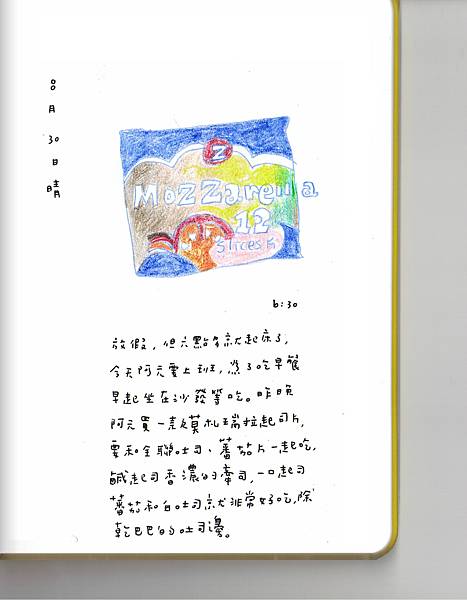 8月30日晴
Z
Mozzarella
12
Slices
6:30
放假,但六點多就起床了,
今天阿元要上班,為了吃早餐
早起坐在沙發等吃。昨晚
阿元買一款莫札瑞拉起司片,
要和全聯吐司、蕃茄片一起吃,
鹹起司香濃的
起司,一口起司
蕃茄和白吐司就非常好吃,除
乾巴巴的吐司邊。